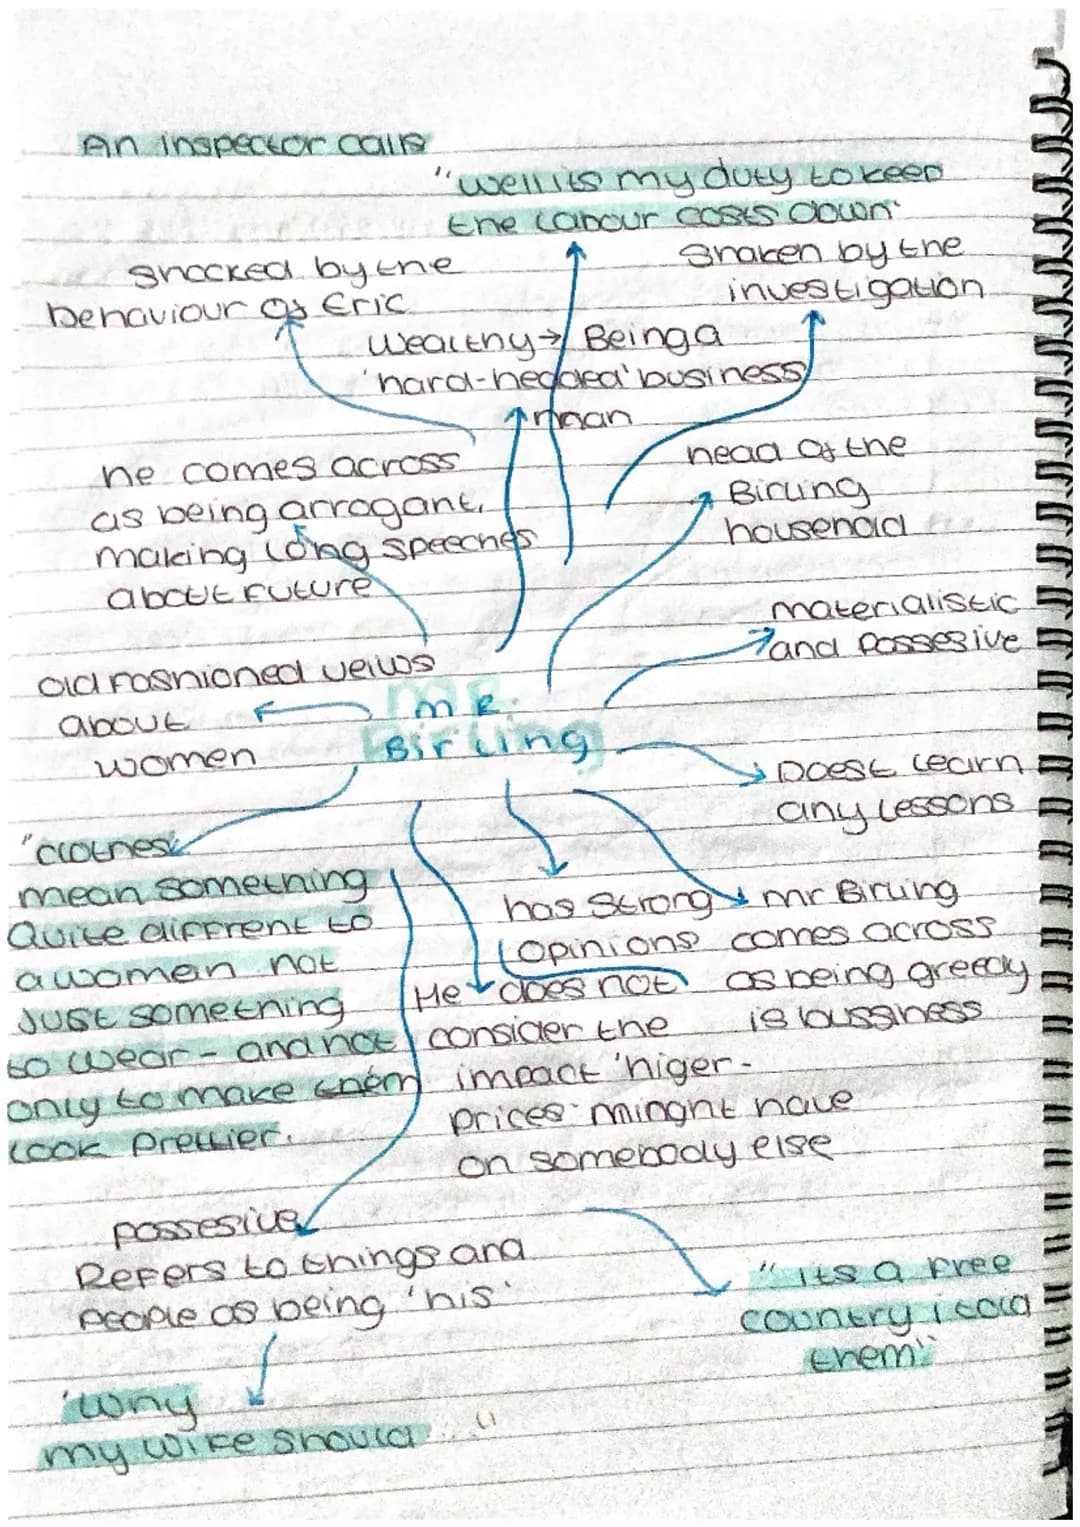 An inspector calls
"well its my duty to keep
the labour costs down"
shocked by the
behaviour of Eric
shaken by the
investigation
Wealthy → Being a
'hard-hedded' business
man
he comes across
as being arrogant,
making long speeches
about future
head of the
Birling
household
materialistic
and possesive
old fashioned veiws
about
women
Mr.
Birling
Doest learn
any lessons
"clothes
mean something
Quite diffrent to
a women not
Just something
to wear - and not
only to make them
look prettier.
has strong
opinions
mr Birling
comes across
as being greedy
is bussiness
He does not
consider the
impact 'higer-
prices' minght have
on somebody else
possesive
Refers to things and
people as being 'his'
"its a free
country i told
them"
'why
my wife should"